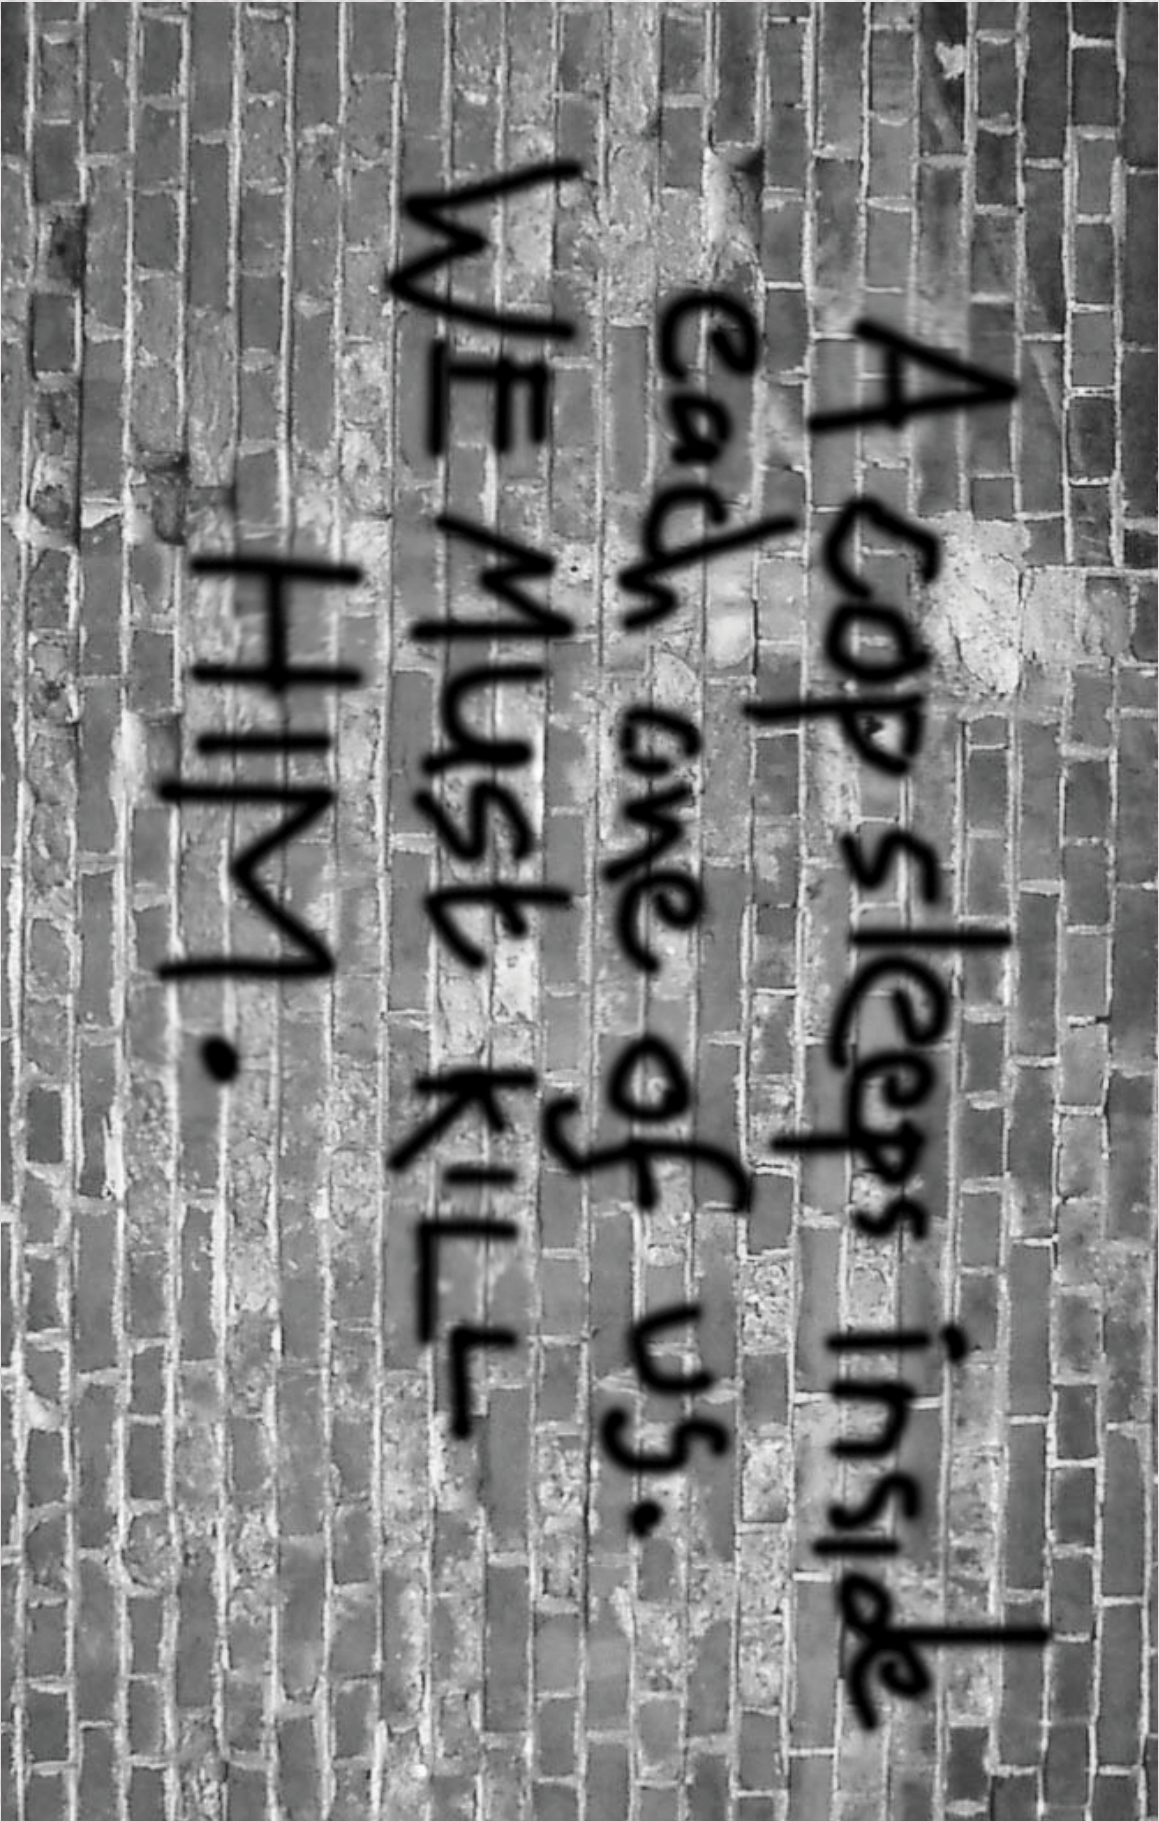 A cop sleeps inside
each one of us.
WE MUST KILL
HIM.